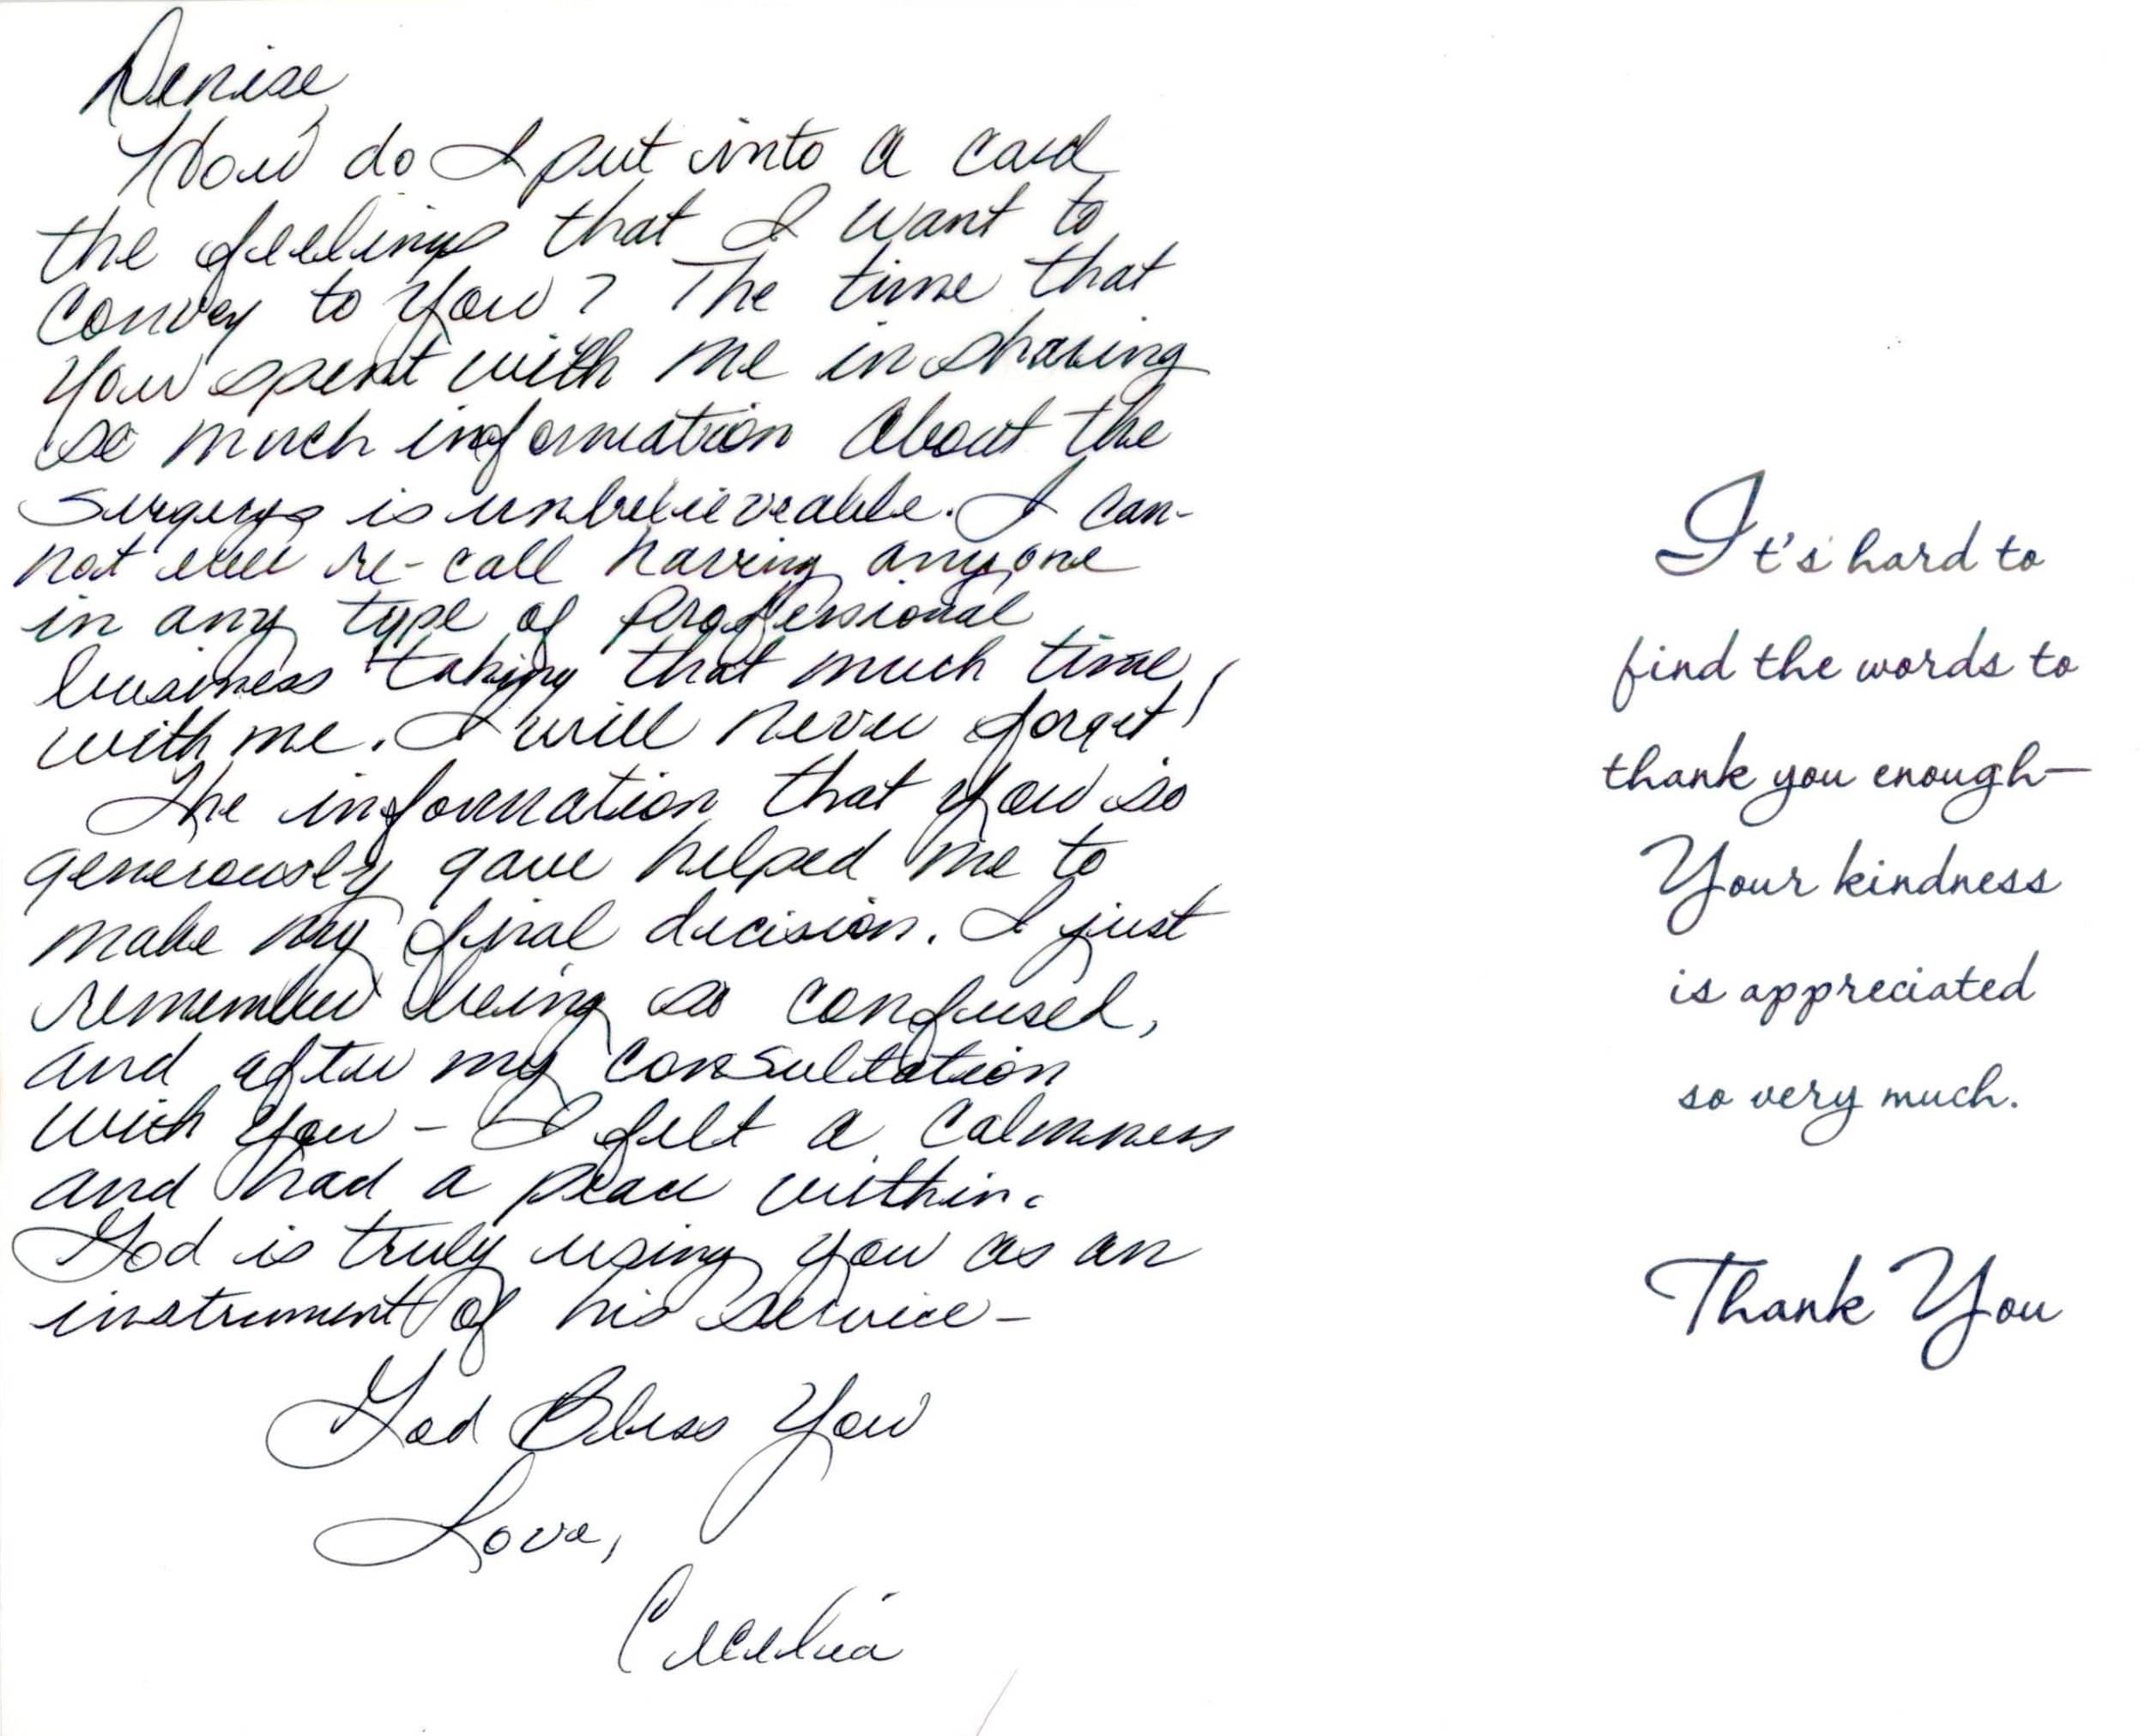 Denise,
How do I put into a card
the feelings that I want to
convey to you? The time that
you spent with me in sharing
so much information about the
surgerys is unbelieveable. I can-
not ever re-call having anyone
in any type of professional
business taking that much time
with me. I will never forget!
The information that you so
generously gave helped me to
make my final decision. I just
remember being so confused,
and after my consultation
with you - I felt a calmness
and had a peace within.
God is truly using you as an
instrument of his service -
God Bless You
Love,
Cecelia
It's hard to
find the words to
thank you enough—
Your kindness
is appreciated
so very much.
Thank You